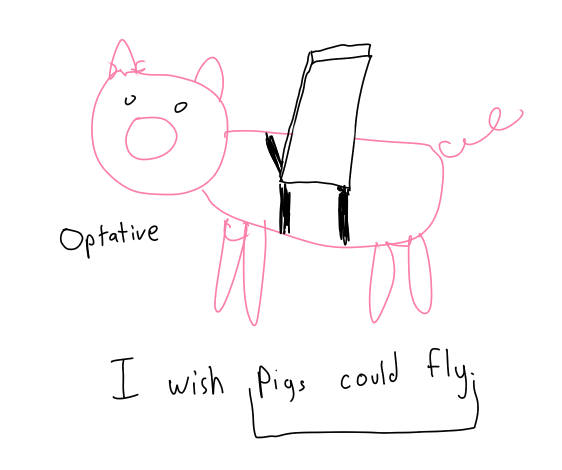 Optative
I wish pigs could fly.